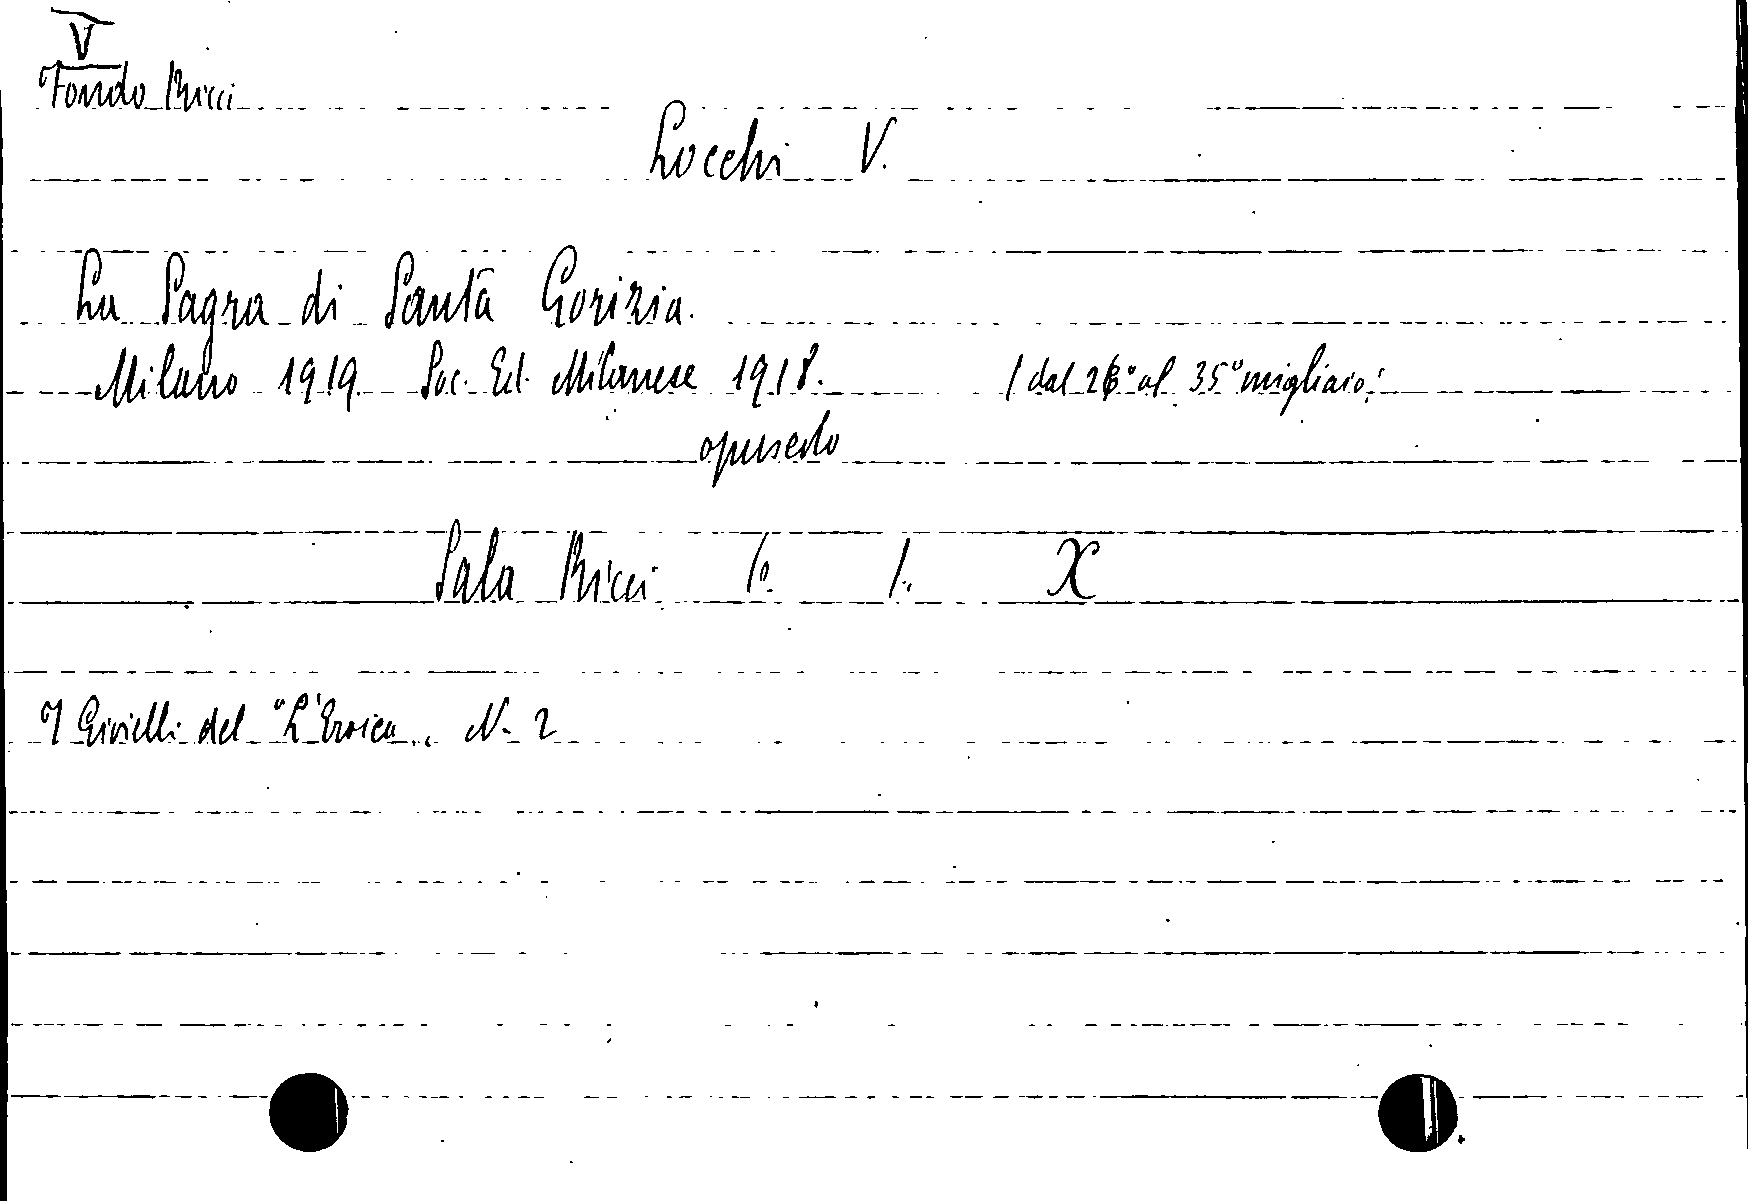 V
Fondo Ricci
Locchi V.
La Sagra di Santa Gorizia.
Milano 1919 Soc. Ed. Milanese 1918. (dal 26° al 35° migliaio)
opuscolo
Sala Ricci X
I Gioielli del "L'Eroica„ N. 2